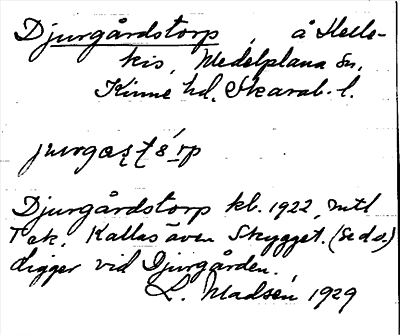 Djurgårdstorp, å Helle-
kis, Medelplana sn,
Kinne hd, Skarab. l.
Djurgårdstorp kl. 1922, mtl
Tak. Kallas även Skygget. (Se d.o.)
ligger vid Djurgården.
L. Madsén 1929